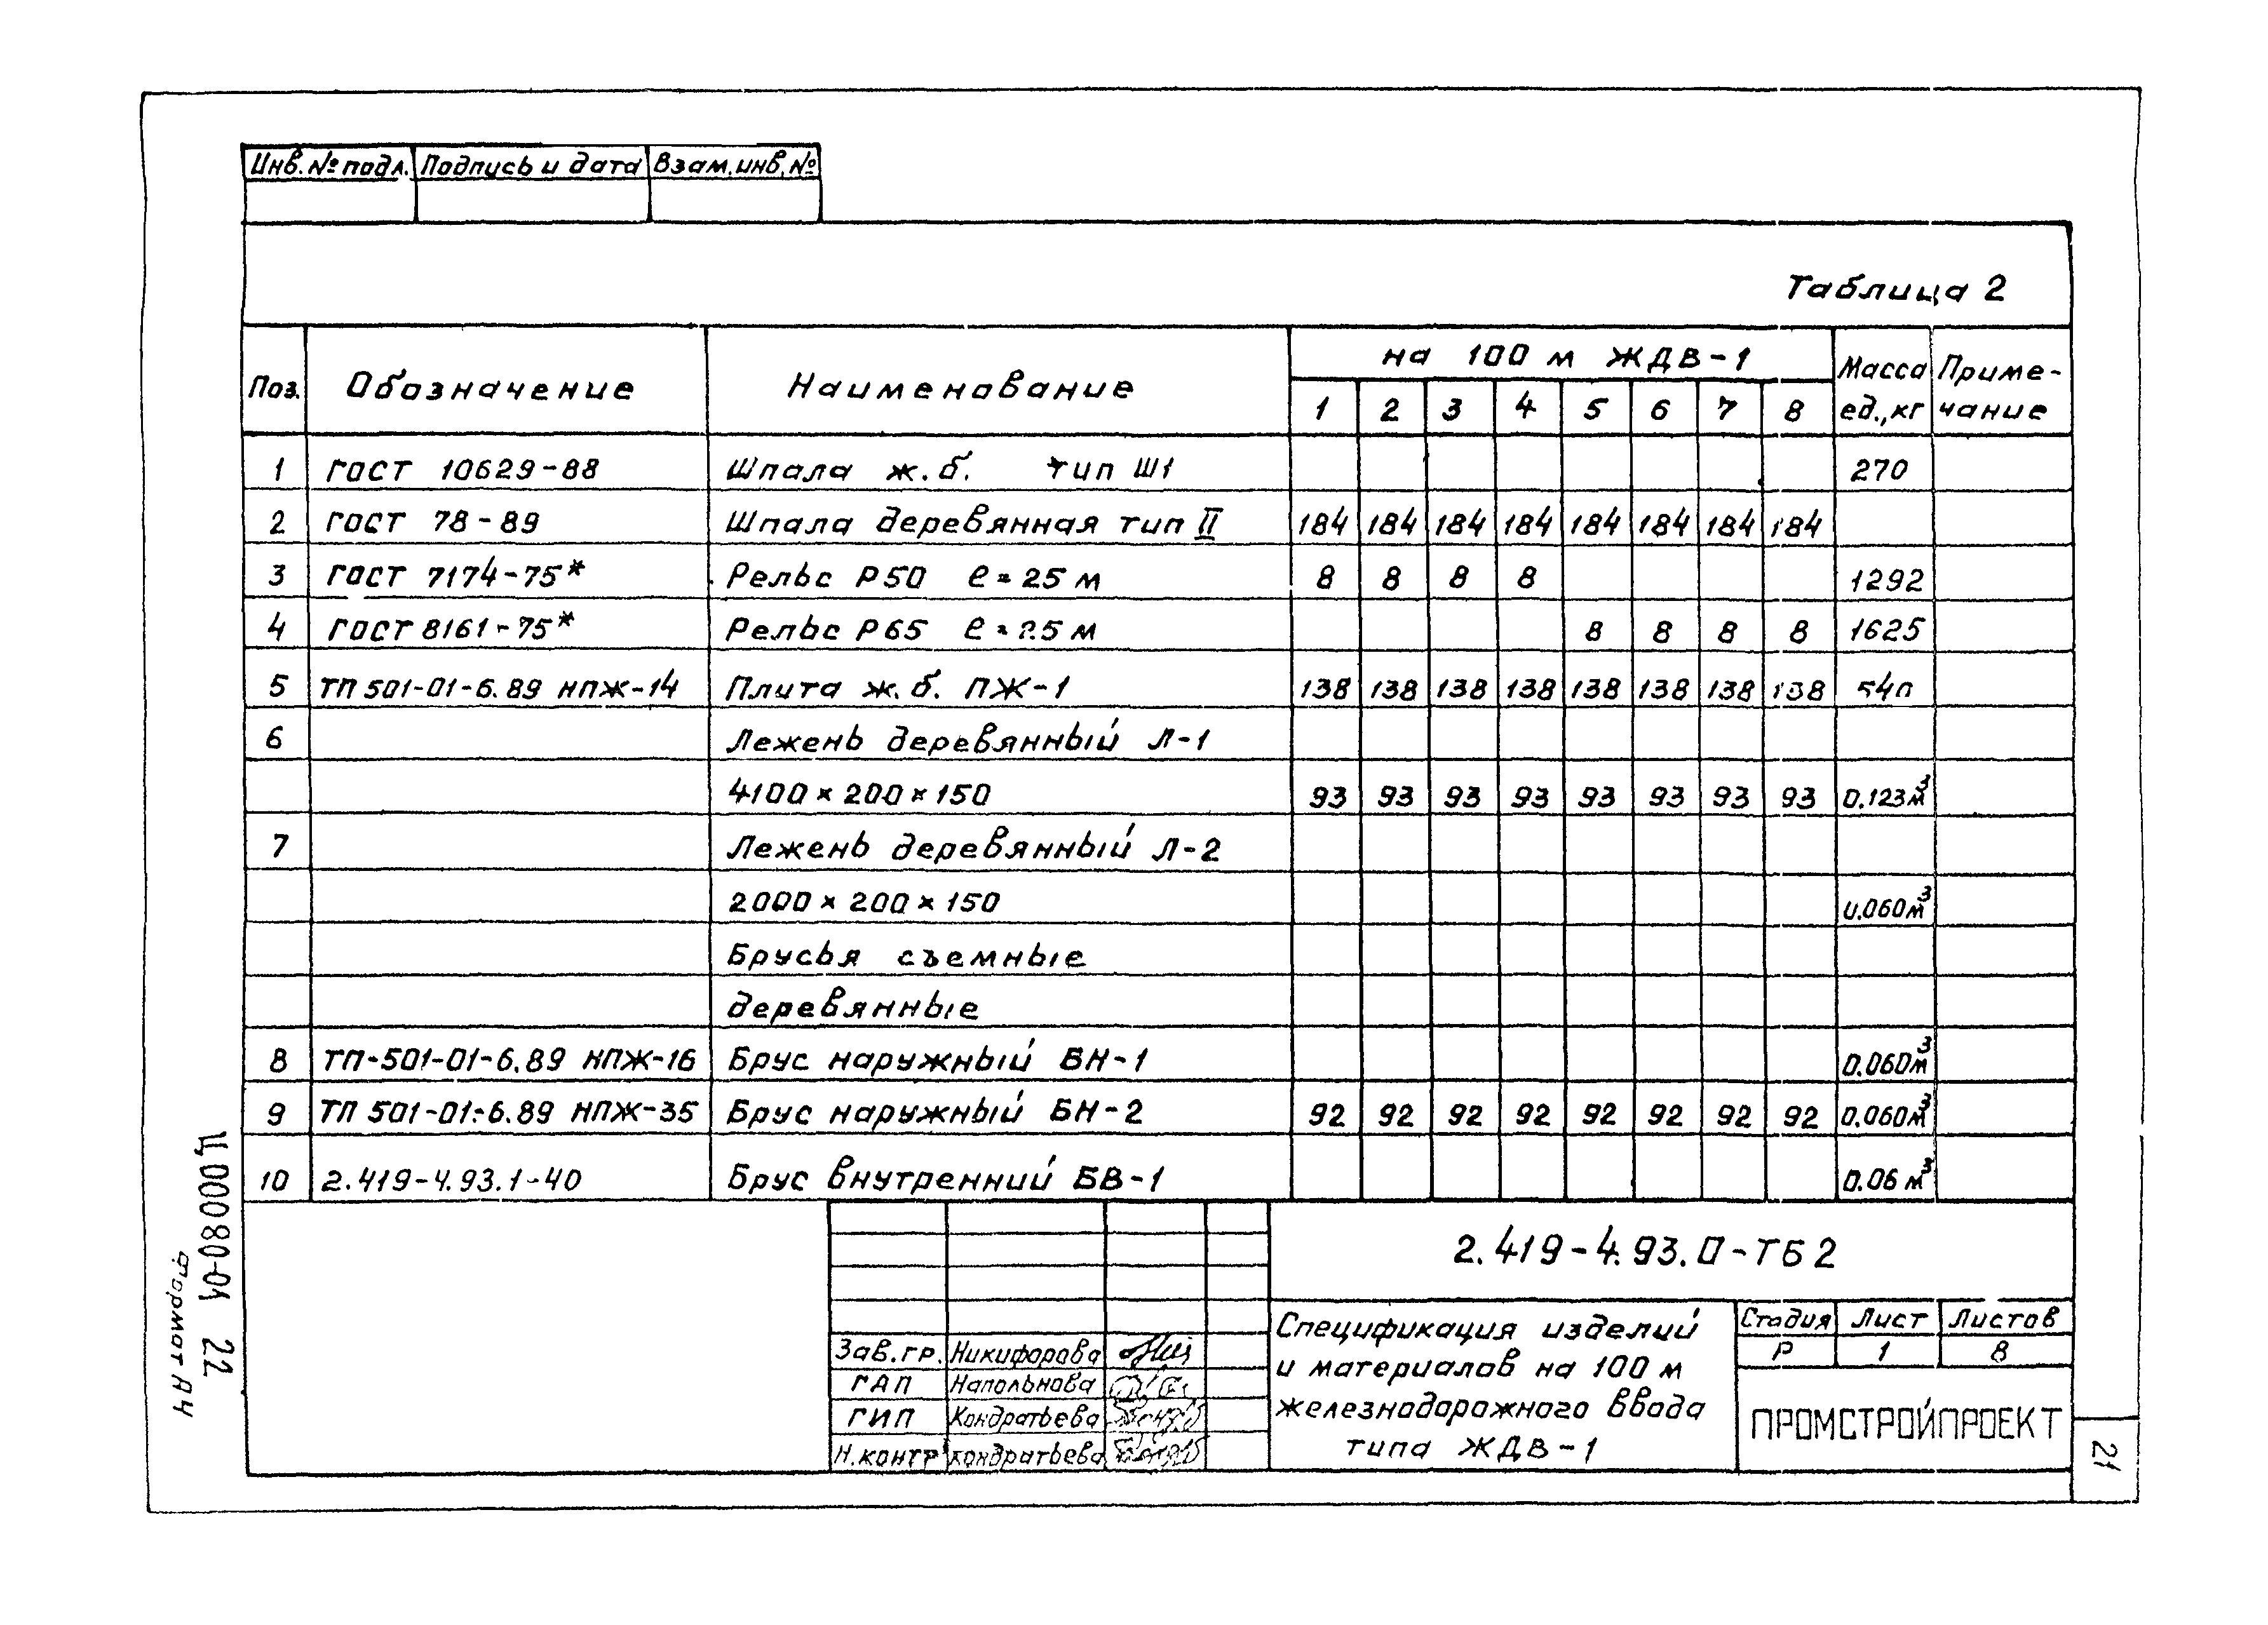 Инв. № подл. Подпись и дата Взам. инв. №
Таблица 2
Поз. Обозначение Наименование на 100 м ЖДВ-1 Масса ед., кг Приме-чание
1 2 3 4 5 6 7 8
1 ГОСТ 10629-88 Шпала ж.б. тип Ш1 270
2 ГОСТ 78-89 Шпала деревянная тип II 184 184 184 184 184 184 184 184
3 ГОСТ 7174-75* Рельс Р50 ℓ=25 м 8 8 8 8 1292
4 ГОСТ 8161-75* Рельс Р65 ℓ=25 м 8 8 8 8 1625
5 ТП 501-01-6.89 НПЖ-14 Плита ж.б. ПЖ-1 138 138 138 138 138 138 138 138 540
6 Лежень деревянный Л-1
4100×200×150 93 93 93 93 93 93 93 93 0.123м³
7 Лежень деревянный Л-2
2000×200×150 0.060м³
Брусья съемные
деревянные
8 ТП-501-01-6.89 НПЖ-16 Брус наружный БН-1 0.060м³
9 ТП 501-01-6.89 НПЖ-35 Брус наружный БН-2 92 92 92 92 92 92 92 92 0.060м³
10 2.419-4.93.1-40 Брус внутренний БВ-1 0.06 м³
2.419-4.93.0-ТБ2
Зав.гр. Никифорова
ГАП Напольнова
ГИП Кондратьева
Н.контр Кондратьева
Спецификация изделий
и материалов на 100 м
железнодорожного ввода
типа ЖДВ-1
Стадия Лист Листов
Р 1 8
ПРОМСТРОЙПРОЕКТ
21
Ц00080-01 22
Формат А4